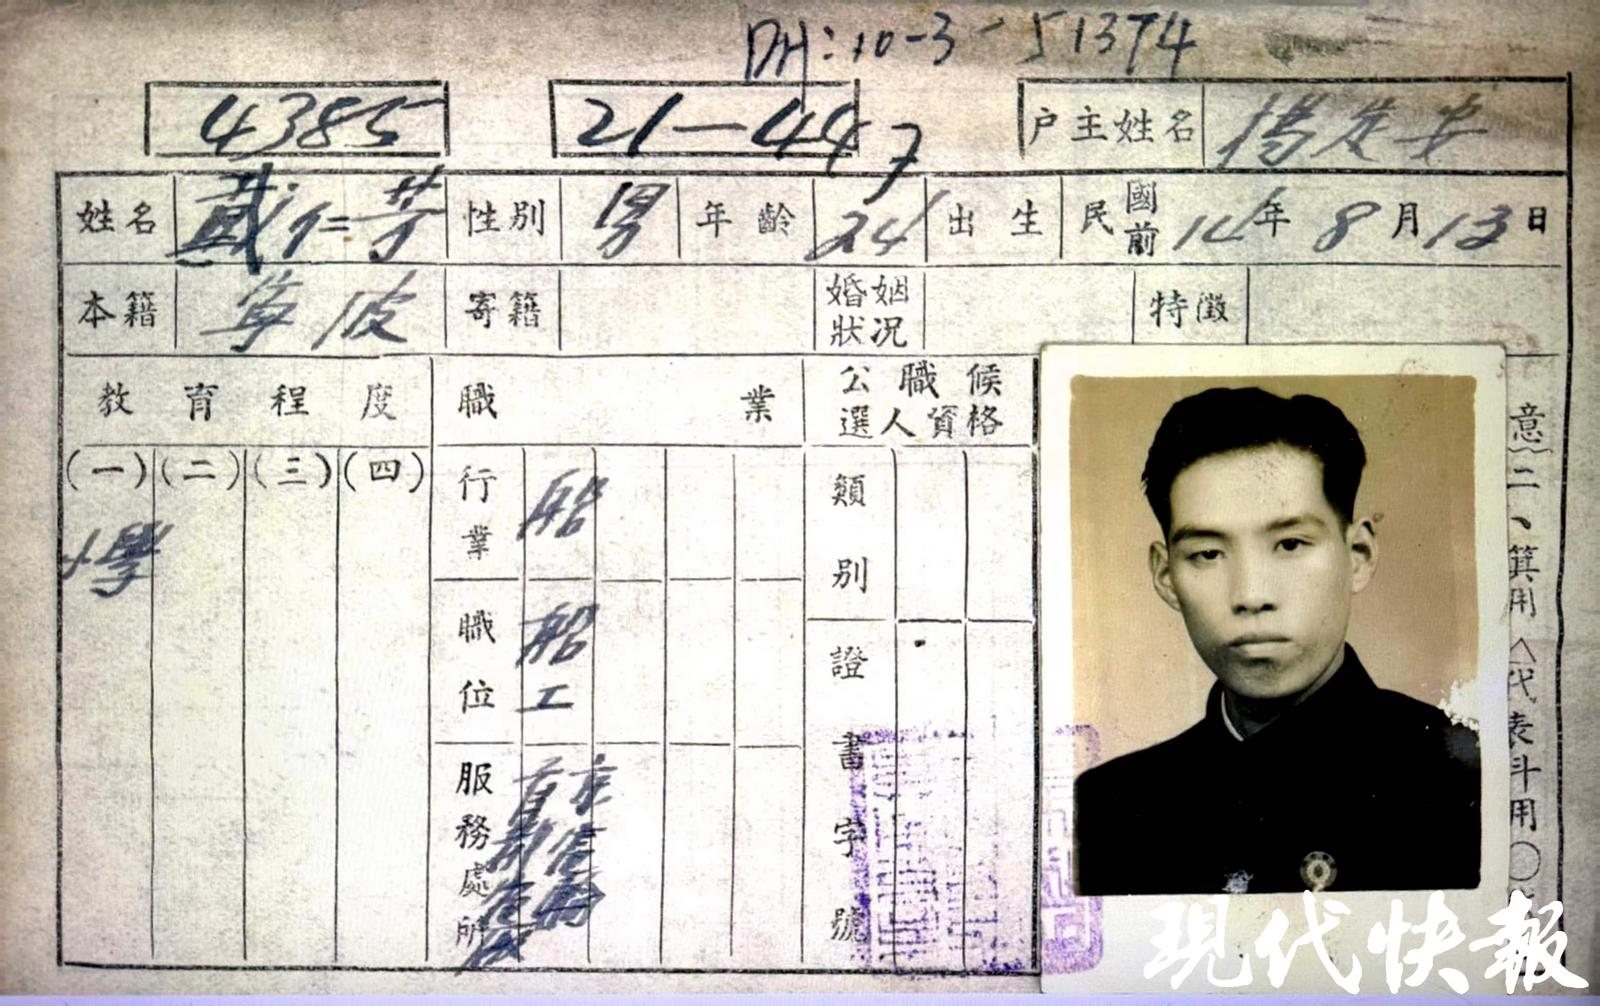 DH:10-3-51374
4385
21-447
户主姓名 楊定安
姓名 戴仁芳 性别 男 年齡 24 出生 民國前 14年8月13日
本籍 寧波 寄籍 婚姻狀况 特徵
教育程度 職業 公職候選人資格
(一)(二)(三)(四)
小學
行業 船
職位 船工
服務處所
類别
證書字號
意二、箕用△代表斗用〇
現代快報